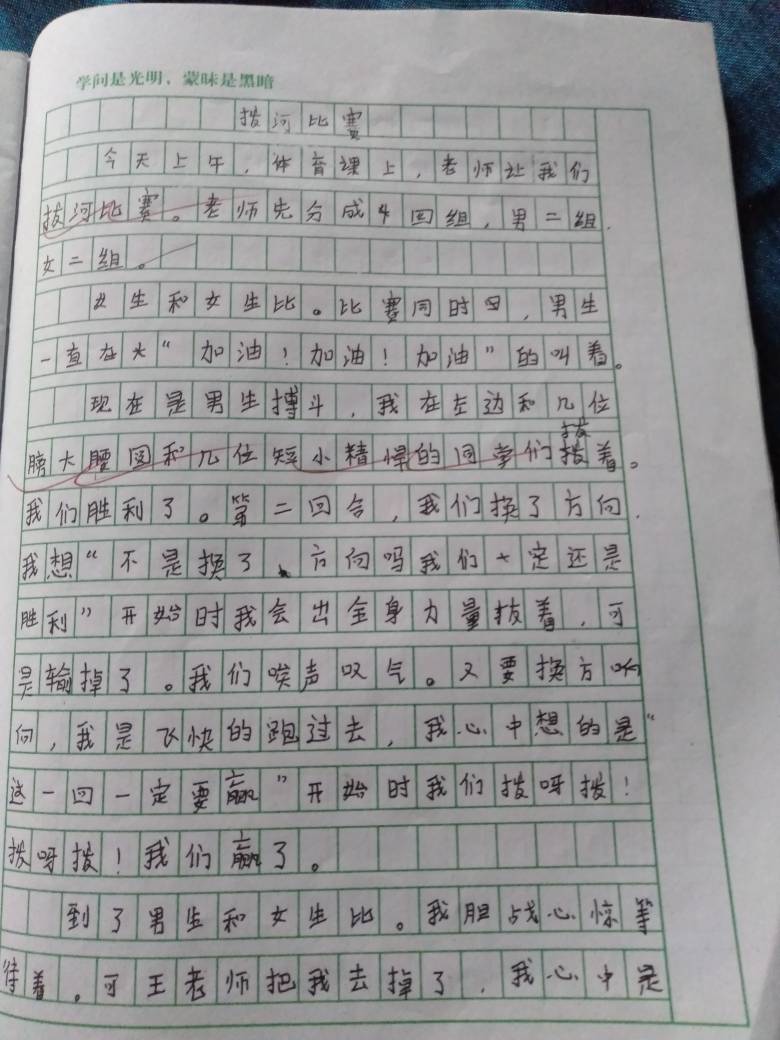 学问是光明，蒙昧是黑暗
拨河比赛
今天上午，体育课上，老师让我们
拔河比赛。老师先分成4回组，男二组，
女二组。
女生和女生比。比赛同时四，男生
一直在大“加油！加油！加油”的叫着。
现在是男生搏斗，我在左边和几位
膀大腰圆和几位短小精悍的同学们拔着。
我们胜利了。第二回合，我们换了方向，
我想“不是换了、方向吗我们一定还是
胜利”开始时我会出全身力量拔着，可
是输掉了。我们唉声叹气。又要换方
向，我是飞快的跑过去，我心中想的是“
这一回一定要赢”开始时我们拨呀拨！
拨呀拨！我们赢了。
到了男生和女生比。我胆战心惊等
待着。可王老师把我去掉了，我心中是